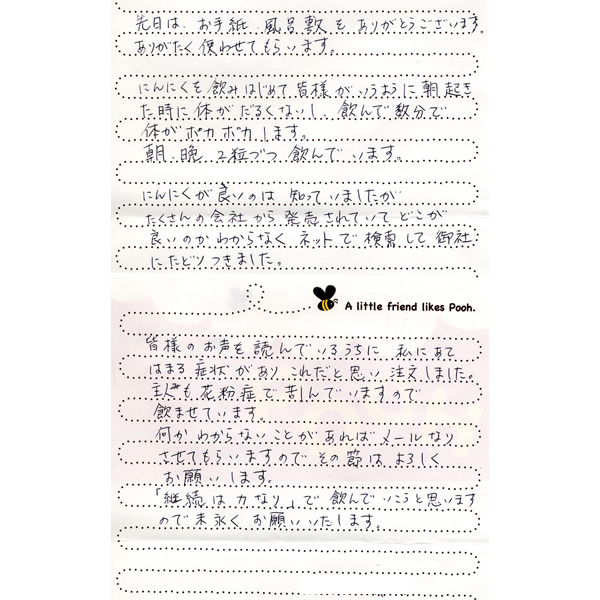 先日は、お手紙、風呂敷をありがとうございます。
ありがたく使わせてもらいます。
にんにくを飲みはじめて皆様がいうように朝起き
た時に体がだるくないし、飲んで数分で
体がポカポカします。
朝、晩、2粒づつ飲んでいます。
にんにくが良いのは知っていましたが
たくさんの会社から発売されていてどこが
良いのかわからなくネットで検索して御社
にたどりつきました。
A little friend likes Pooh.
皆様のお声を読んでいるうちに私にあて
はまる症状があり これだと思い注文しました。
主人も花粉症で苦しんでいますので
飲ませています。
何かわからないことがあればメールなり
させてもらいますのでその節はよろしく
お願いします。
「継続は力なり」で飲んでいこうと思います
ので末永くお願いいたします。